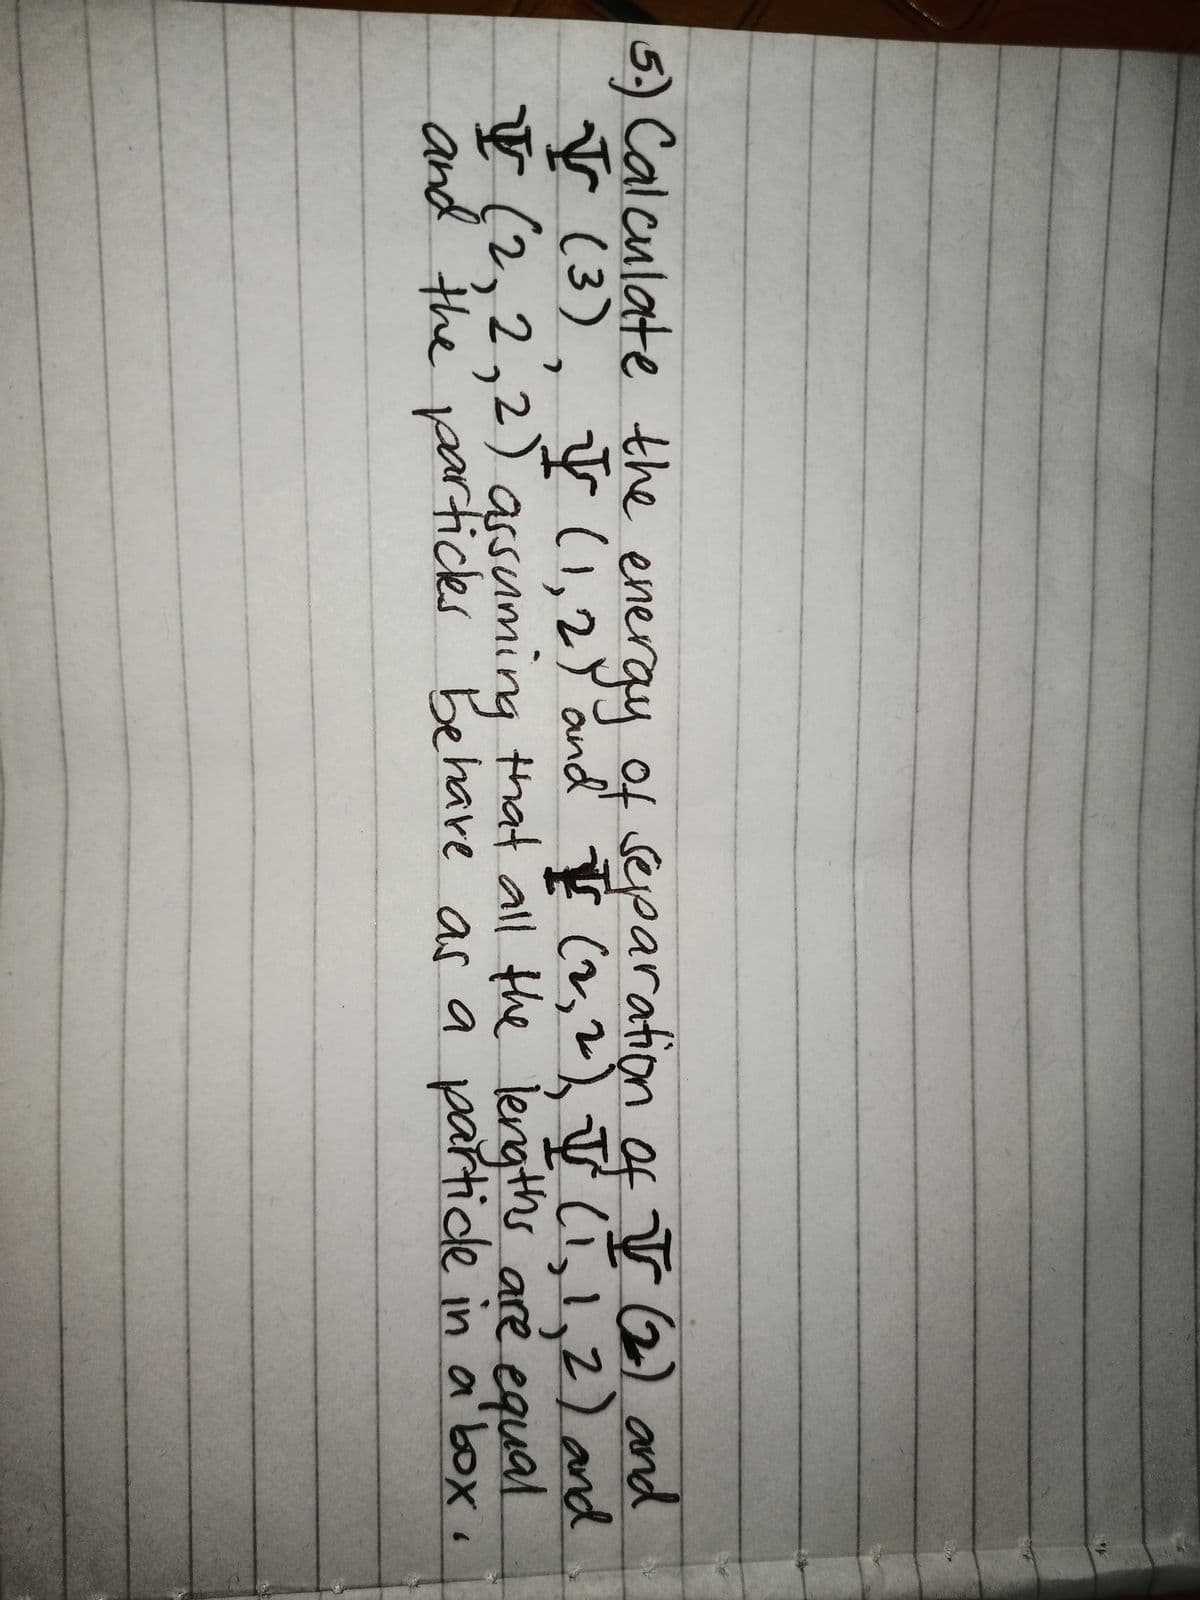 5.) Calculate the energy of separation of Ψ (2) and
Ψ (3), Ψ (1,2) and Ψ (2,2), Ψ (1,1,2) and
Ψ (2,2,2) assuming that all the lengths are equal
and the particles behave as a particle in a box.